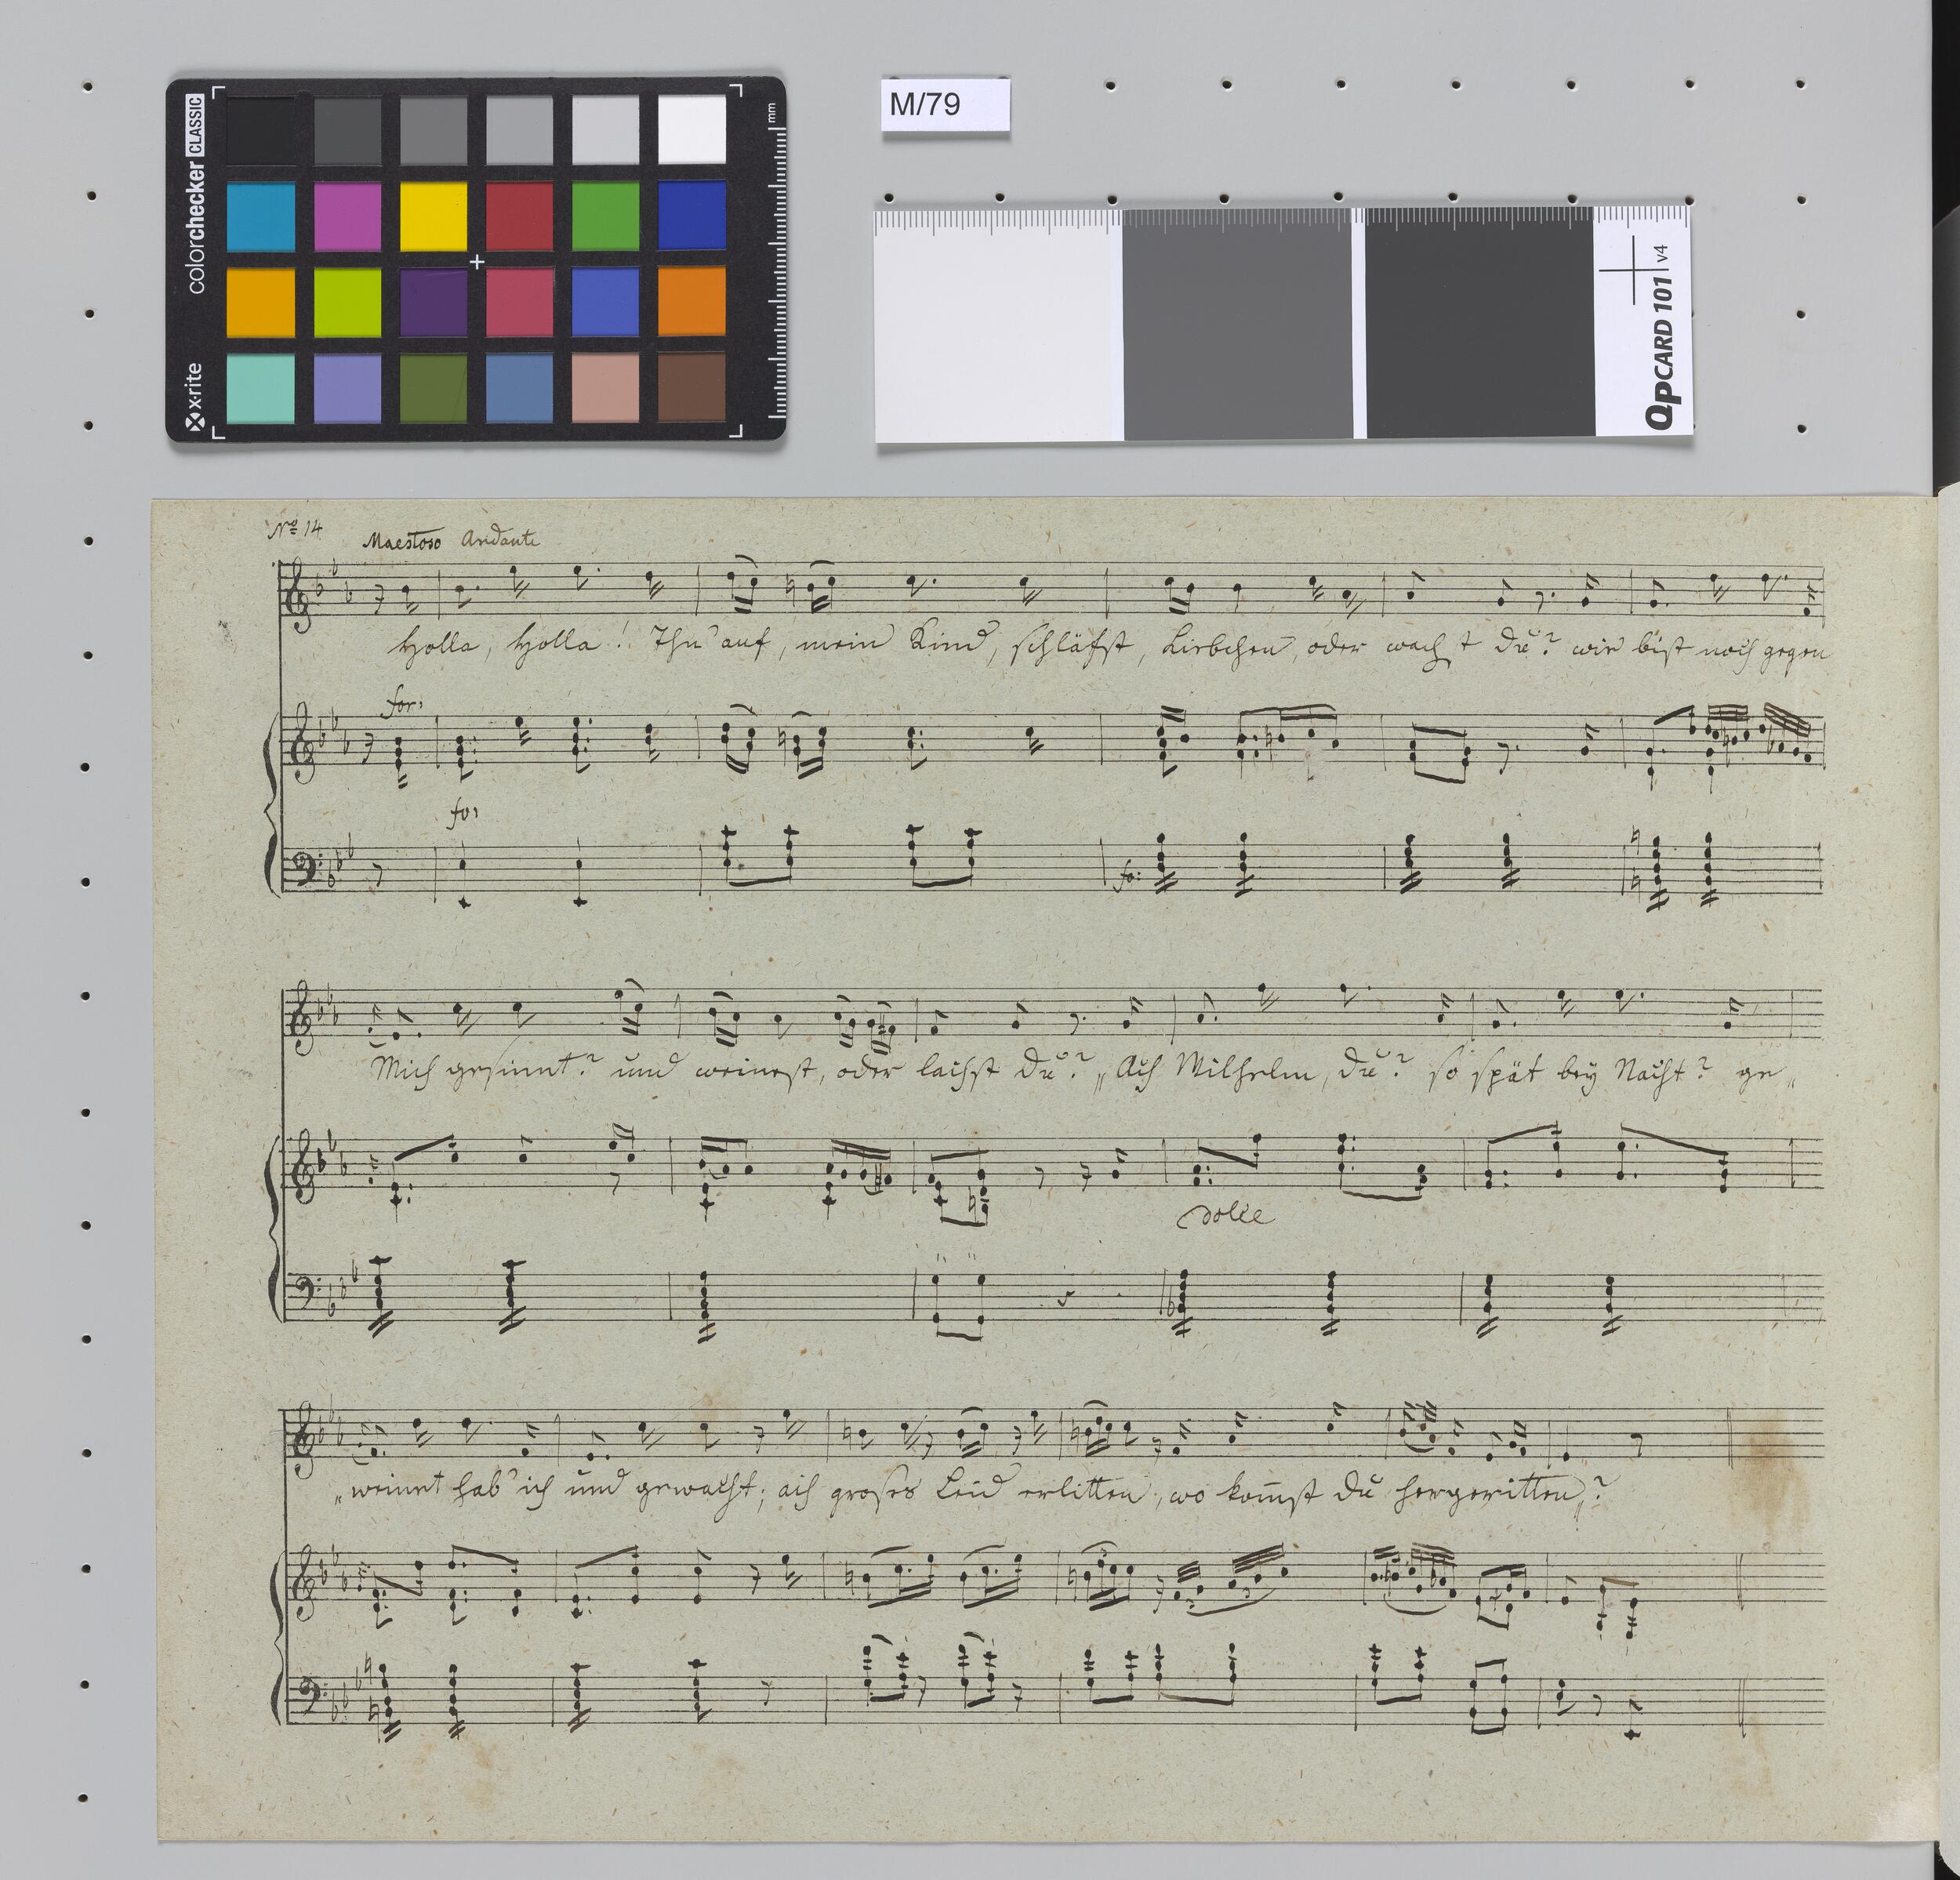 colorchecker CLASSIC
x-rite
mm
M/79
QPCARD 101 v4
No 14
Maestoso Andante
Holla, Holla! Thu' auf, mein Kind, schläfst, Liebchen, oder wachst du? wie bist noch gegen
for:
fo:
fo:
Mich gesinnt? und weinest, oder lachst du? „Ach Wilhelm, du? so spät bey Nacht? ge„
dolce
„weinet hab' ich und gewacht; ach großes Leid erlitten, wo kom̅st du hergeritten„?
3
3